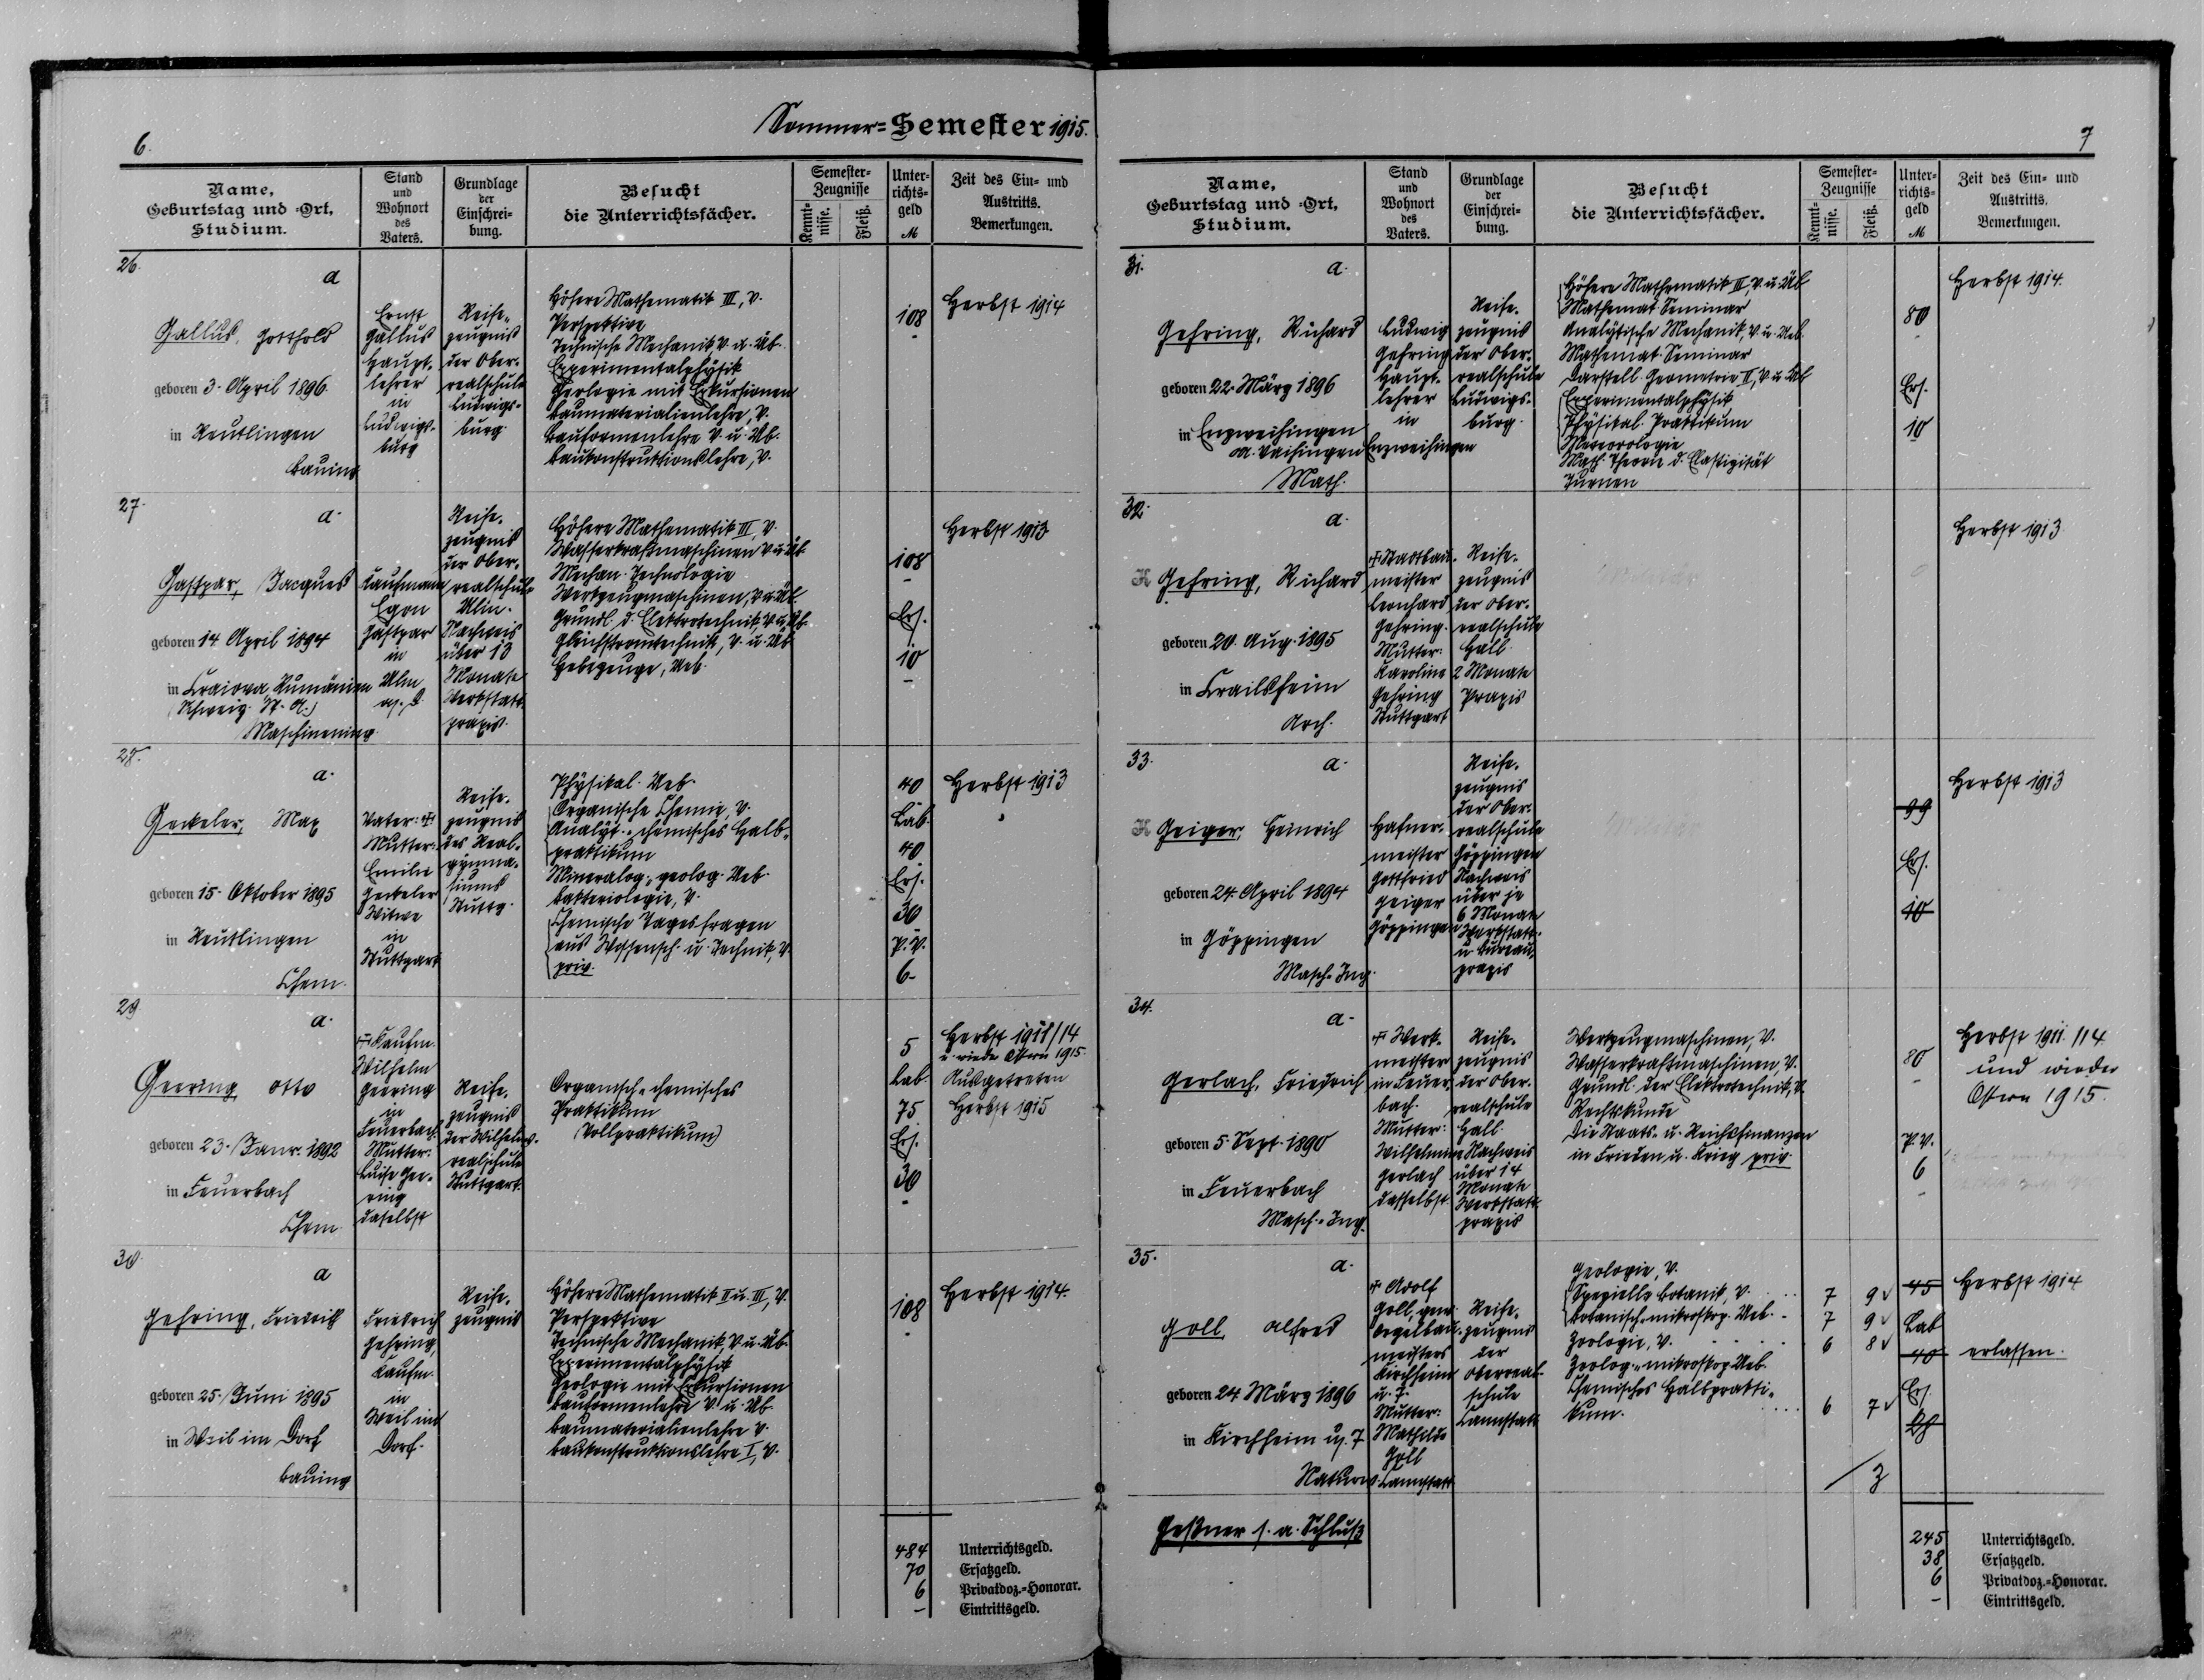 Sommer-Semester 1915.
6.
Name,
Geburtstag und -Ort,
Studium.
Stand
und
Wohnort
des
Vaters.
Grundlage
der
Einschrei-
bung.
Besucht
die Unterrichtsfächer.
Semester-
Zeugnisse
Kennt-
nisse.
Fleiß.
Unter-
richts-
geld
M
Zeit des Ein- und
Austritts.
Bemerkungen.
26.
a
Gallus, Gotthold
geboren 3. April 1896
in Reutlingen
Bauing
Ernst
Gallus
Haupt-
lehrer
in
Ludwigs-
burg
Reife-
zeugnis
der Ober-
realschule
Ludwigs-
burg.
Höhere Mathematik III, V.
Perspektive
Technische Mechanik V. u. Üb.
Experimentalphysik
Geologie mit Exkursionen
Baumaterialienlehre, V.
Bauformenlehre V. u. Üb.
Baukonstruktionslehre, V.
108
-
Herbst 1914
27.
a.
Gastpar, Jacques
geboren 14 April 1894
in Craiova, Rumänien
(Schweiz. St. A.)
Maschinening.
Kaufmann
Egon
Gastpar
in
Ulm
a/D.
Reife-
zeugnis
der Ober-
realschule
Ulm.
Nachweis
über 13
Monate
Werkstatt-
praxis.
Höhere Mathematik III, V.
Wasserkraftmaschinen V. u. Üb.
Mechan. Technologie
Werkzeugmaschinen, V. u. Üb.
Grundl. d. Elektrotechnik V. u. Üb.
Gleichstromtechnik, V. u. Üb.
Hebezeuge, Ueb.
108
-
Ers.
10
-
Herbst 1913
28.
a.
Geckeler, Max
geboren 15. Oktober 1895
in Reutlingen
Chem.
Vater: †
Mutter:
Emilie
Geckeler
Witwe
in
Stuttgart
Reife-
zeugnis
des Real-
gymna-
siums
Stuttg.
Physikal. Ueb.
Organische Chemie, V.
Analyt.-chemisches Halb-
praktikum
Mineralog., geolog. Ueb.
Bakteriologie, V.
Chemische Tagesfragen
aus Wissensch. u. Technik, V.
priv.
40
Lab.
40
Ers.
30
P. V.
6-
Herbst 1913
29
a.
Geering, Otto
geboren 23. Janr. 1892
in Feuerbach
Chem.
† Kaufm.
Wilhelm
Geering
in
Feuerbach
Mutter:
Luise Gee-
ring
daselbst
Reife-
zeugnis
der Wilhelms-
realschule
Stuttgart.
Organisch-chemisches
Praktikum
(Vollpraktikum)
5
Lab.
75
Ers.
30
-
Herbst 1911/14
u. wieder Ostern 1915.
Ausgetreten
Herbst 1915
30.
a
Gehring, Friedrich
geboren 25. Juni 1895
in Weil im Dorf
Bauing
Friedrich
Gehring,
Kaufm.
in
Weil im
Dorf.
Reife-
zeugnis
Höhere Mathematik II u. III, V.
Perspektive
Technische Mechanik, V. u. Üb.
Experimentalphysik
Geologie mit Exkursionen
Bauformenlehre V. u. Üb.
Baumaterialienlehre V.
Baukonstruktionslehre I, V.
108
-
Herbst 1914.
484 Unterrichtsgeld.
70 Ersatzgeld.
6 Privatdoz.-Honorar.
- Eintrittsgeld.
7
Name,
Geburtstag und -Ort,
Studium.
Stand
und
Wohnort
des
Vaters.
Grundlage
der
Einschrei-
bung.
Besucht
die Unterrichtsfächer.
Semester-
Zeugnisse
Kennt-
nisse.
Fleiß.
Unter-
richts-
geld
M
Zeit des Ein- und
Austritts.
Bemerkungen.
31.
a.
Gehring, Richard
geboren 22. März 1896
in Enzweihingen
OA. Vaihingen
Math.
Ludwig
Gehring
Haupt-
lehrer
in
Enzweihingen
Reife-
zeugnis
der Ober-
realschule
Ludwigs-
burg.
Höhere Mathematik III, V. u. Üb
Mathemat. Seminar
Analytische Mechanik, V. u. Ueb.
Mathemat. Seminar
Darstell. Geometrie II, V. u. Üb
Experimentalphysik
Physikal. Praktikum
Meteorologie
Math. Theorie d. Elastizität
Turnen
80
-
Ers.
10
Herbst 1914.
32.
a.
K Gehring, Richard
geboren 20. Aug. 1895
in Crailsheim
Arch.
† Stadtbau-
meister
Leonhard
Gehring.
Mutter:
Karoline
Gehring
Stuttgart
Reife-
zeugnis
der Ober-
realschule
Hall.
2 Monate
Praxis
Herbst 1913
33.
a.
K Geiger, Heinrich
geboren 24. April 1894
in Göppingen
Masch.-Ing.
Hafner-
meister
Gottfried
Geiger
Göppingen
Reife-
zeugnis
der Ober-
realschule
Göppingen
Nachweis
über je
6 Monate
Werkstatt-
u. Bureau-
praxis
99
Ers.
10
Herbst 1913
34.
a.
Gerlach, Friedrich
geboren 5. Sept. 1890
in Feuerbach
Masch.-Ing.
† Werk-
meister
in Feuer-
bach.
Mutter:
Wilhelmine
Gerlach
daselbst
Reife-
zeugnis
der Ober-
realschule
Hall.
Nachweis
über 14
Monate
Werkstatt-
praxis
Werkzeugmaschinen, V.
Wasserkraftmaschinen, V.
Grundl. der Elektrotechnik, V.
Rechtskunde
Die Staats- u. Reichsfinanzen
in Frieden u. Krieg priv.
80
-
P. V.
6
-
Herbst 1911/14
und wieder
Ostern 1915.
35.
a.
Goll, Alfred
geboren 24 März 1896
in Kirchheim u/T
Naturw.
† Adolf
Goll, gew.
Orgelbau-
meisters
Kirchheim
u. T.
Mutter:
Mathilde
Goll
Cannstatt
Reife-
zeugnis
der
Oberreal-
schule
Cannstatt
Geologie, V.
Spezielle Botanik, V. 7 9
Botanisch-mikroskop. Ueb. 7 9
Zoologie, V. 6 8
Zoolog.-mikroskop. Ueb.
Chemisches Halbprakti-
kum. 6 7
45
Lab
40
Ers.
Herbst 1914
erlassen.
Geßner s. a. Schluß
245 Unterrichtsgeld.
38 Ersatzgeld.
6 Privatdoz.-Honorar.
- Eintrittsgeld.